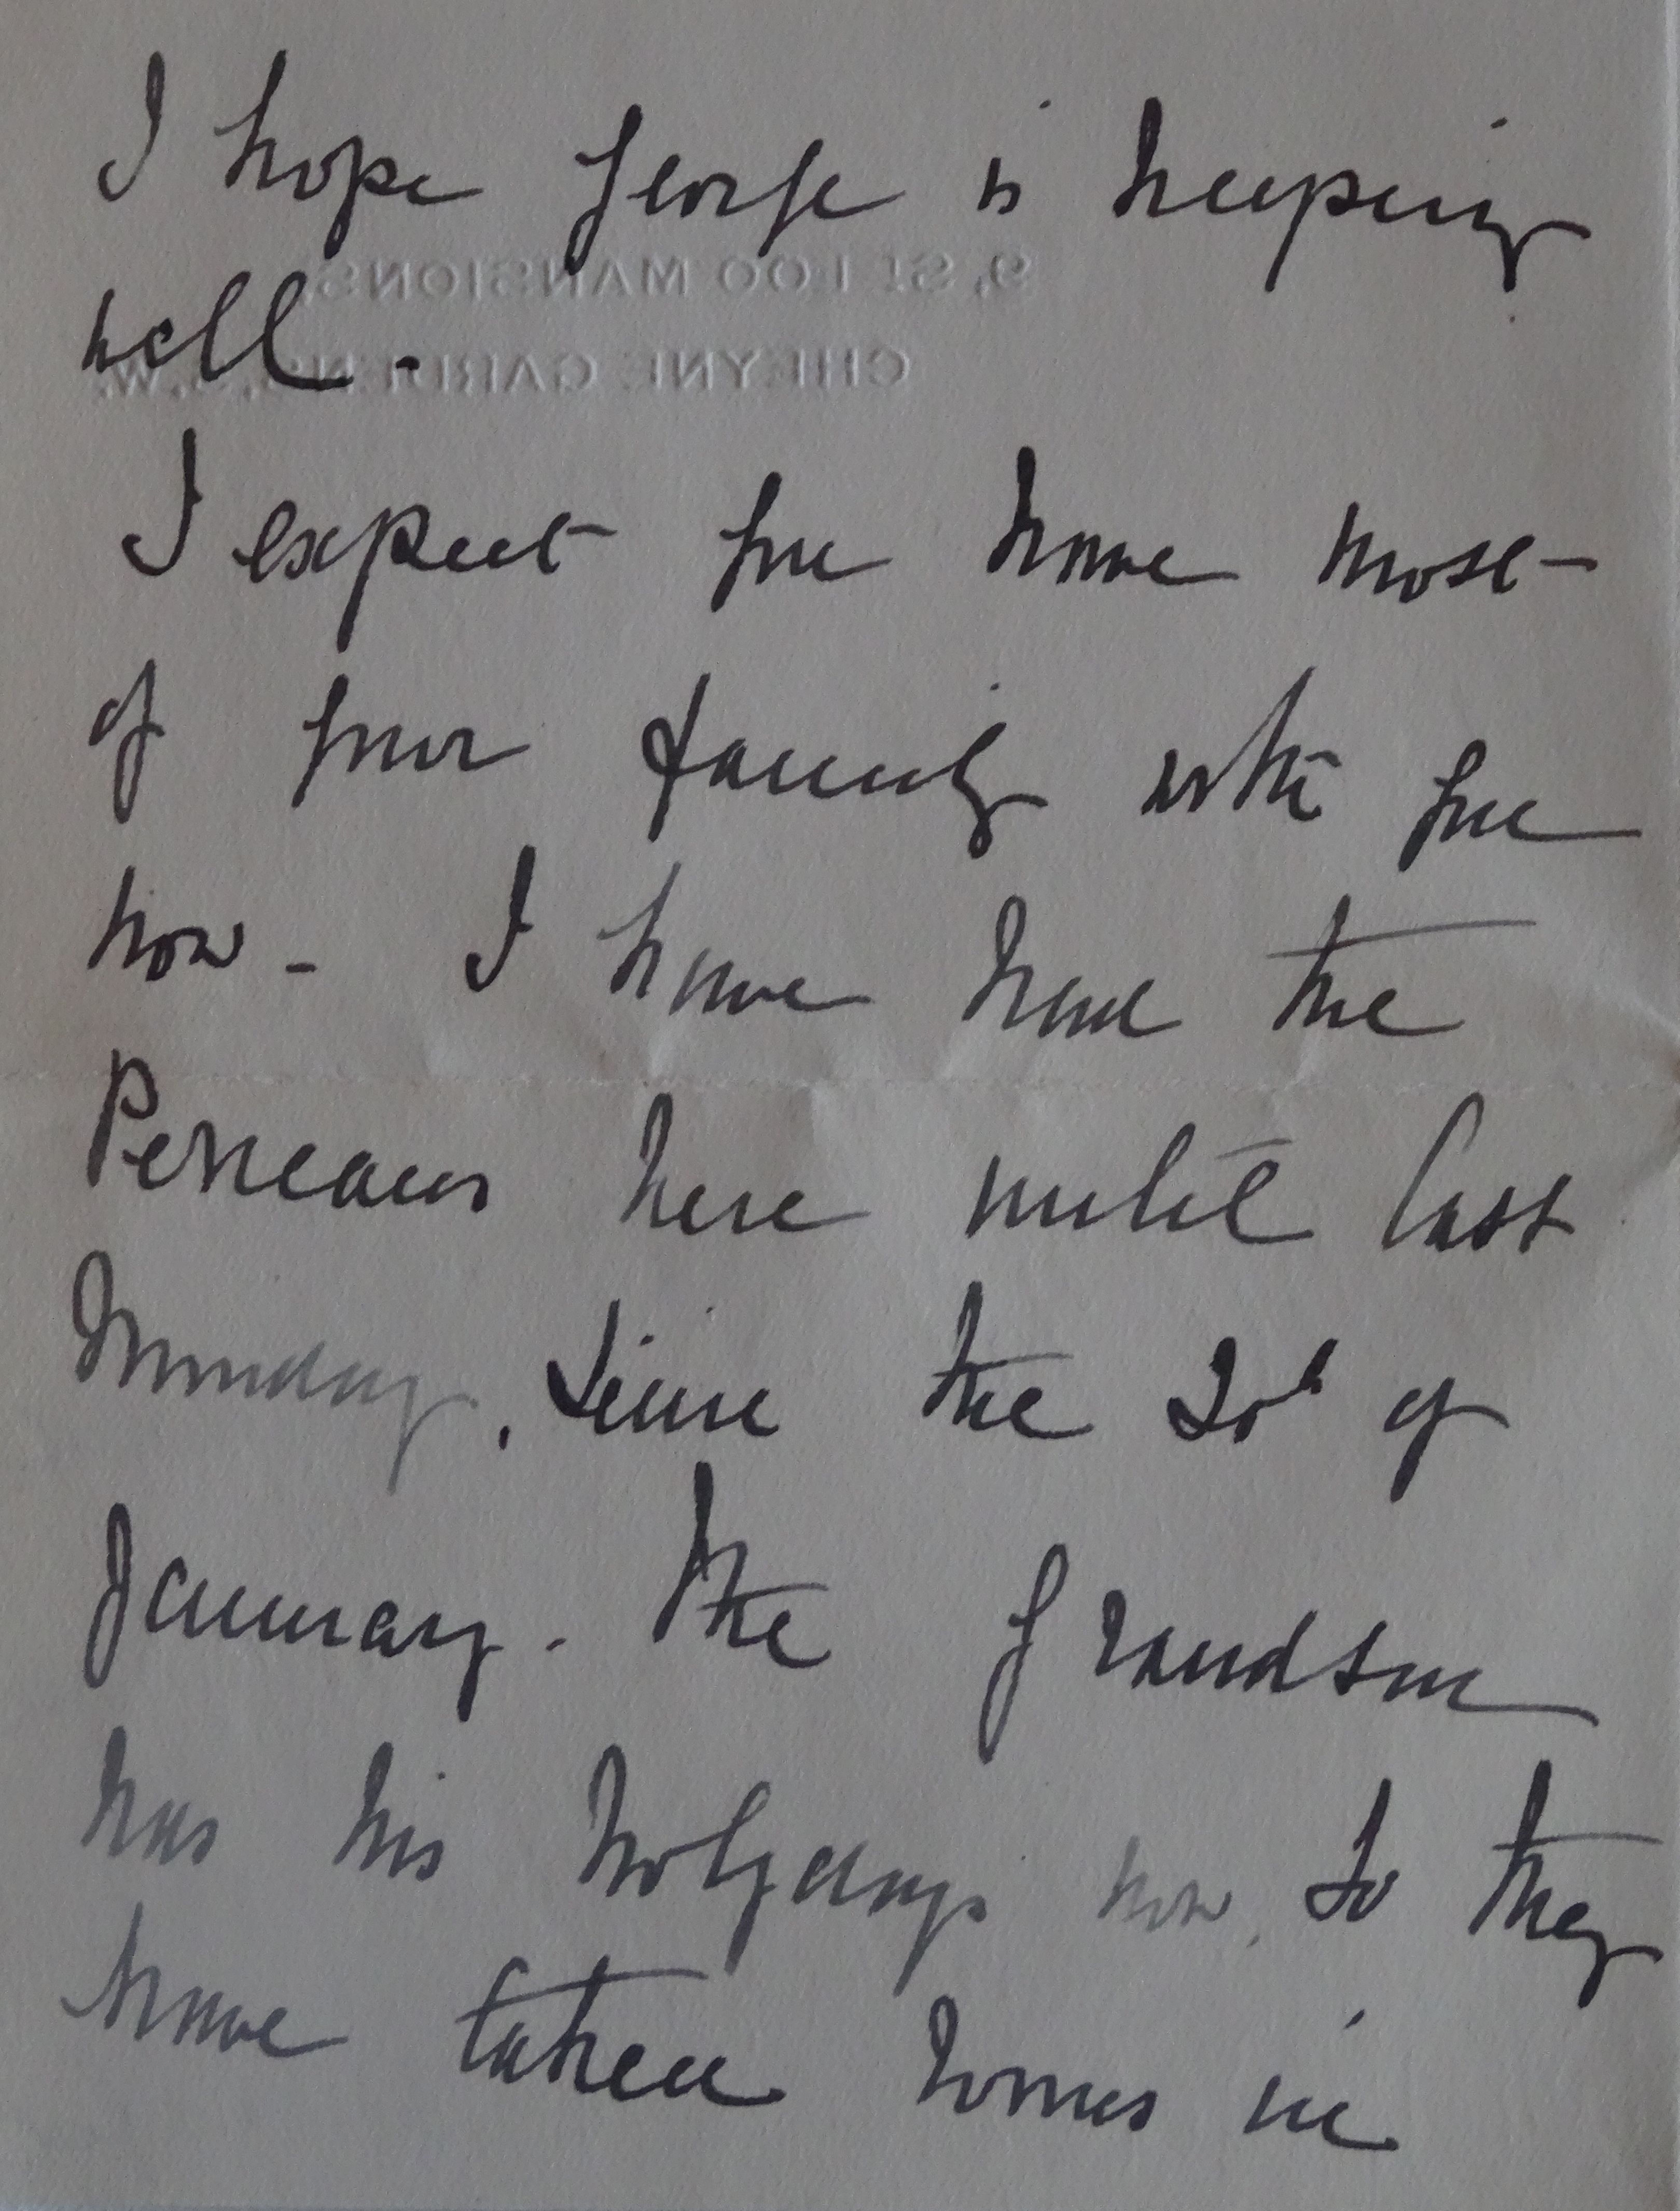 I hope George is keeping
9, St LOO MANSIONS,
well.
CHEYNE GARDENS, S.W.
I expect you have most
of your family with you
now - I have had the
here until last
Monday, since the 20th of
January. The Grandson
has his holydays now, so they
have taken rooms in